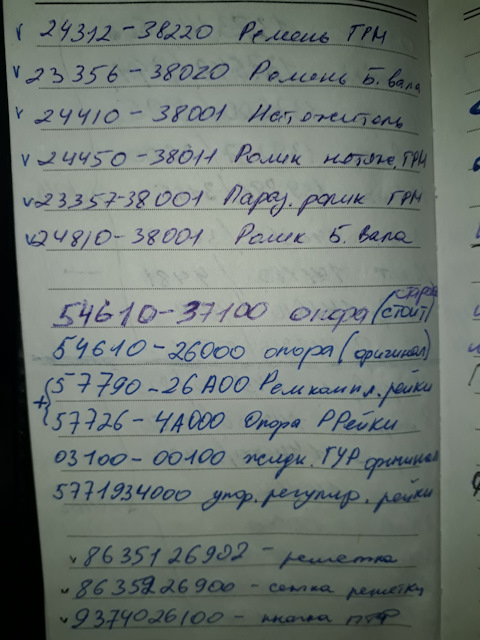 24312-38220 Ремень ГРМ
23356-38020 Ремень Б. вала
24410-38001 Натяжитель
24450-38011 Ролик натяж. ГРМ
23357-38001 Параз. ролик ГРМ
24810-38001 Ролик Б. Вала
54610-37100 опора (стоит)
54610-26000 опора (оригинал)
+ 57790-26A00 Ремкомпл. рейки
57726-4A000 Опора Р Рейки
03100-00100 жидк. ГУР оригинал
5771934000 упор. регулир. рейки
8635126902 - решетка
8635926900 - сетка решетки
9374026100 - кнопка ПТФ